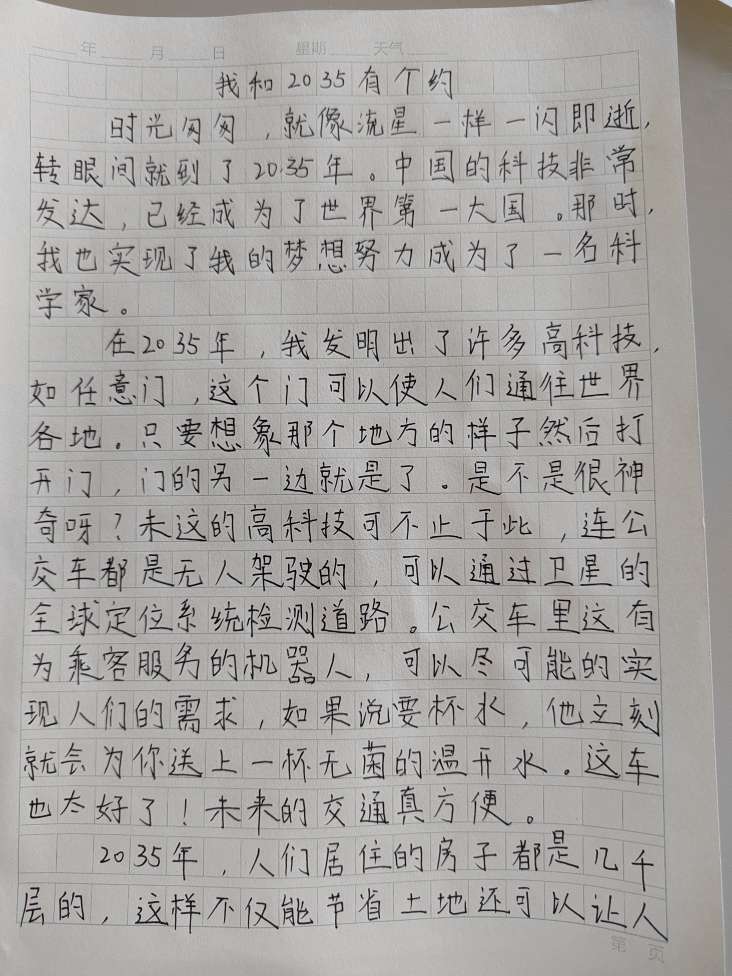 年 月 日 星期 天气
我和2035有个约
时光匆匆，就像流星一样一闪即逝，
转眼间就到了2035年。中国的科技非常
发达，已经成为了世界第一大国。那时，
我也实现了我的梦想努力成为了一名科
学家。
在2035年，我发明出了许多高科技，
如任意门，这个门可以使人们通往世界
各地。只要想象那个地方的样子然后打
开门，门的另一边就是了。是不是很神
奇呀？未这的高科技可不止于此，连公
交车都是无人驾驶的，可以通过卫星的
全球定位系统检测道路。公交车里这有
为乘客服务的机器人，可以尽可能的实
现人们的需求，如果说要杯水，他立刻
就会为你送上一杯无菌的温开水。这车
也太好了！未来的交通真方便。
2035年，人们居住的房子都是几千
层的，这样不仅能节省土地还可以让人
第 页